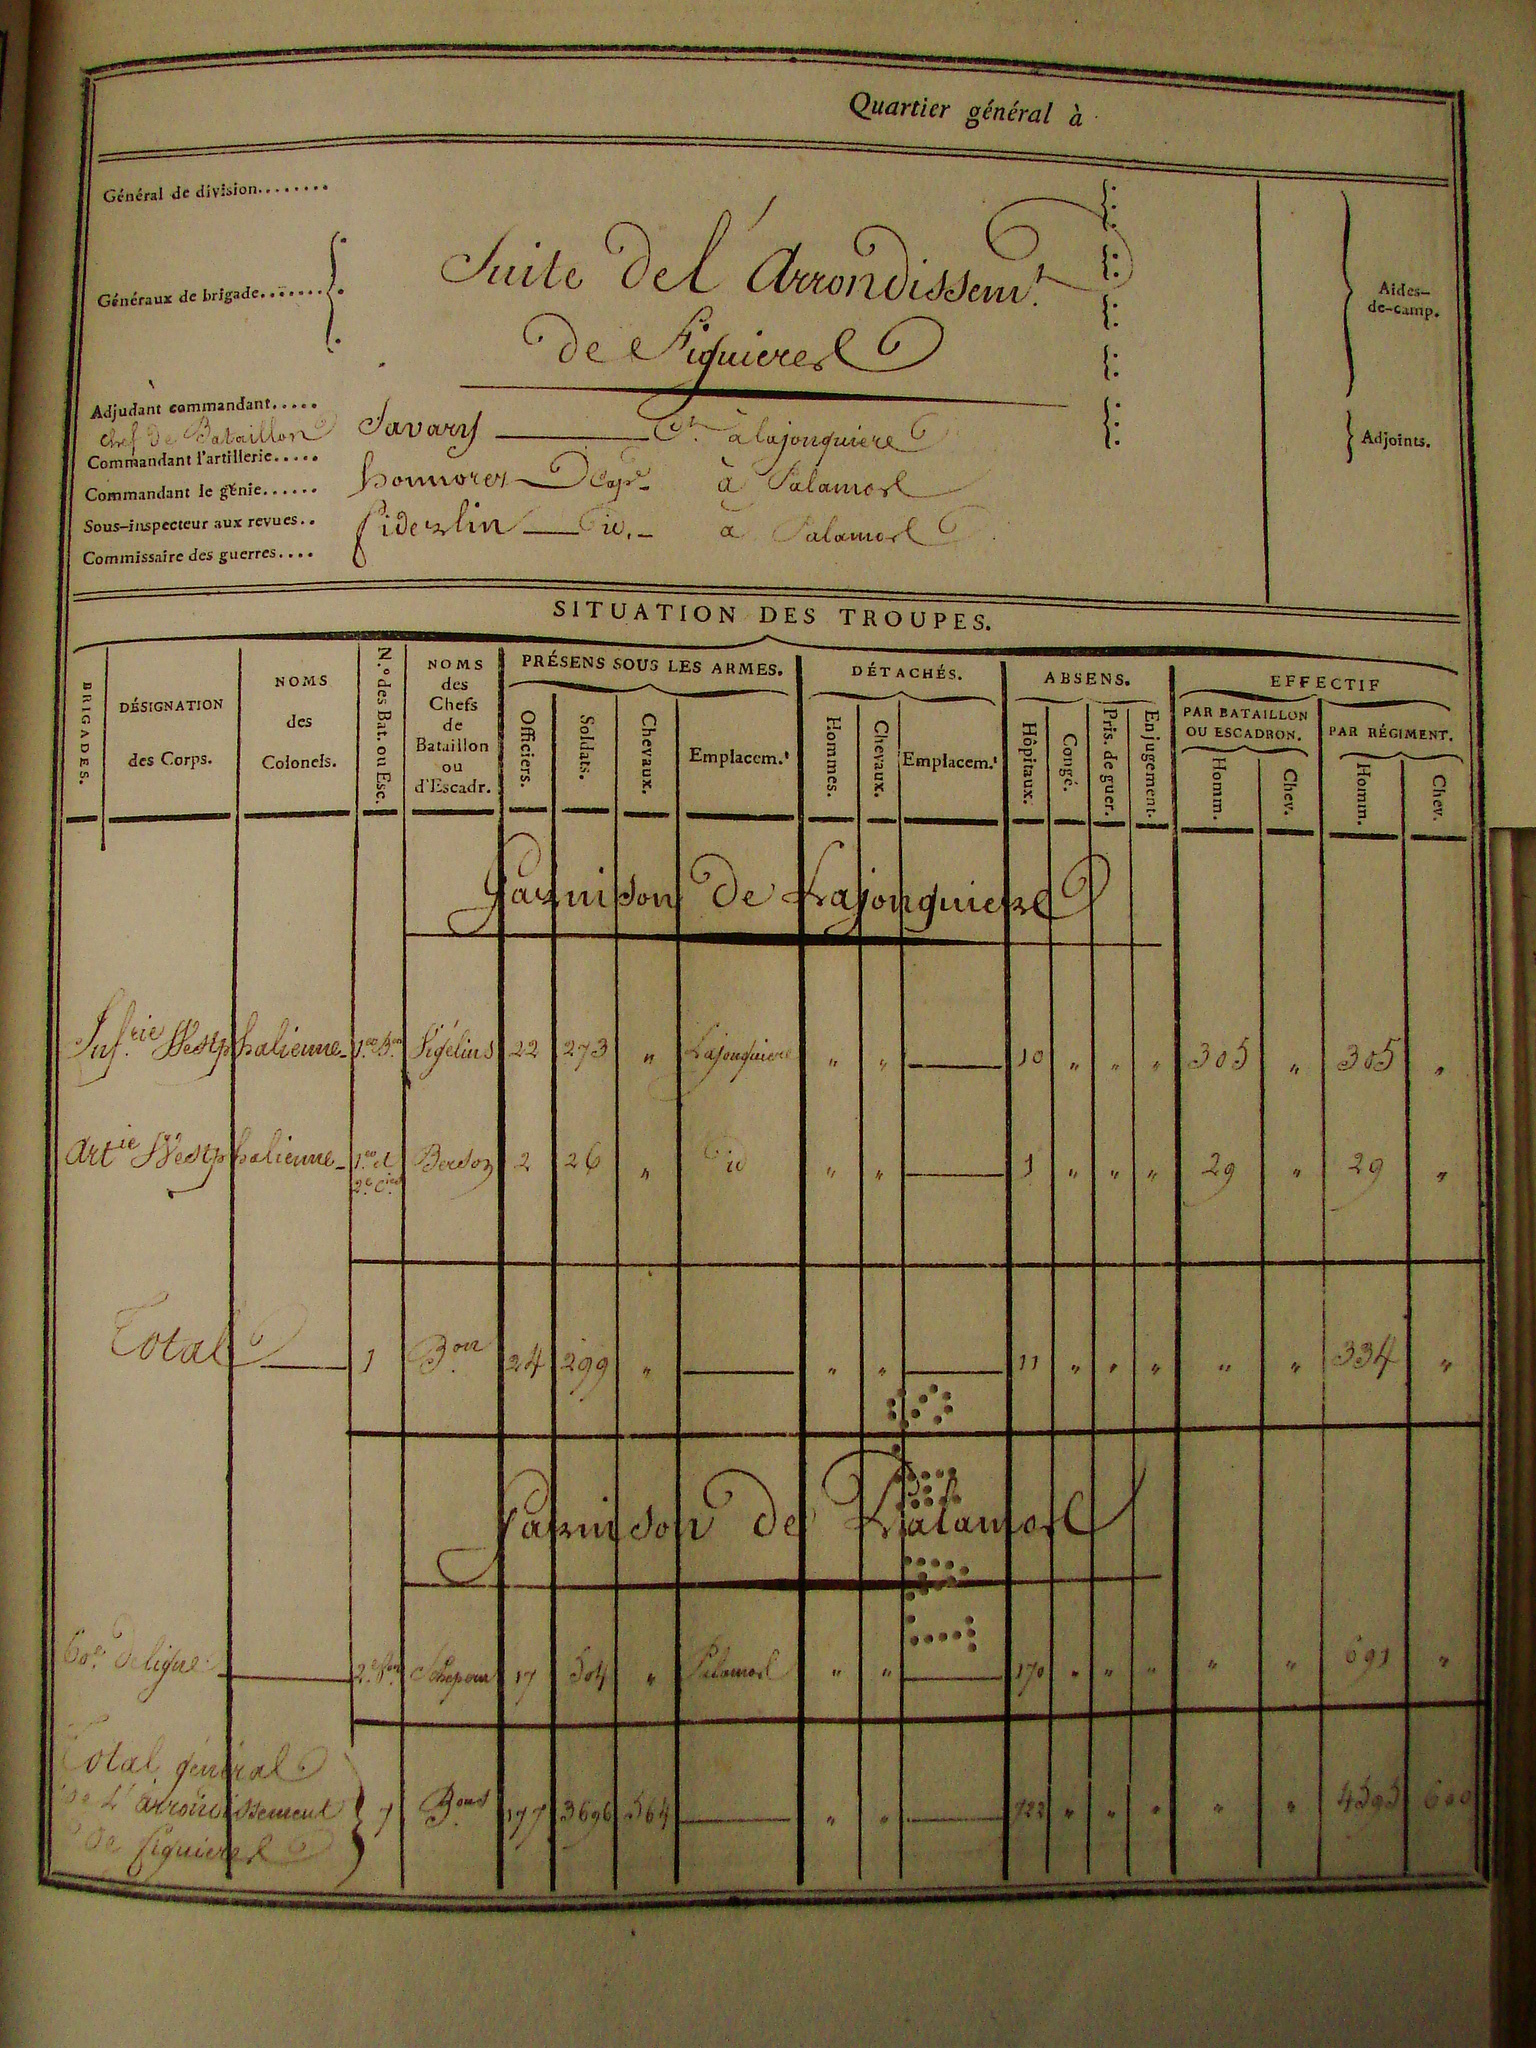 Quartier général à
Général de division........
Suite de l'Arrondissemt.
Généraux de brigade.......
Aides-
de-camp.
de Figuieres
Adjudant commandant.....
chef de Bataillon Savary Ct. à lajonquiere
Adjoints.
Commandant l'artillerie.....
Commandant le génie...... honnorez Cape à Palamos
Sous-inspecteur aux revues.. fiderlin id. à Palamos
Commissaire des guerres....
SITUATION DES TROUPES.
BRIGADES.
DÉSIGNATION
des Corps.
NOMS
des
Colonels.
N.º des Bat. ou Esc.
NOMS
des
Chefs
de
Bataillon
ou
d'Escadr.
PRÉSENS SOUS LES ARMES.
Officiers.
Soldats.
Chevaux.
Emplacem.t
DÉTACHÉS.
Hommes.
Chevaux.
Emplacem.t
ABSENS.
Hôpitaux.
Congé.
Pris. de guer.
En jugement.
EFFECTIF
PAR BATAILLON
OU ESCADRON.
Homm.
Chev.
PAR RÉGIMENT.
Homm.
Chev.
Garnison de Lajonquiere
Inf.rie Westphalienne 1.er B.on Sigélius 22 273 " Lajonquiere " " 10 " " " 305 " 305 "
Art.ie Westphalienne 1.re et 2.e C.ies 2 26 " id " " 1 " " " 29 " 29 "
Total 1 B.on 24 299 " " " 11 " " " " " 334 "
Garnison de Palamos
60.e de ligne 2.e B.on 17 504 " Palamos " " 170 " " " " " 691 "
Total général
de L'arrondissement 7 B.ons 177 3696 564 " " 722 " " " " " 4595 600
de figuieres